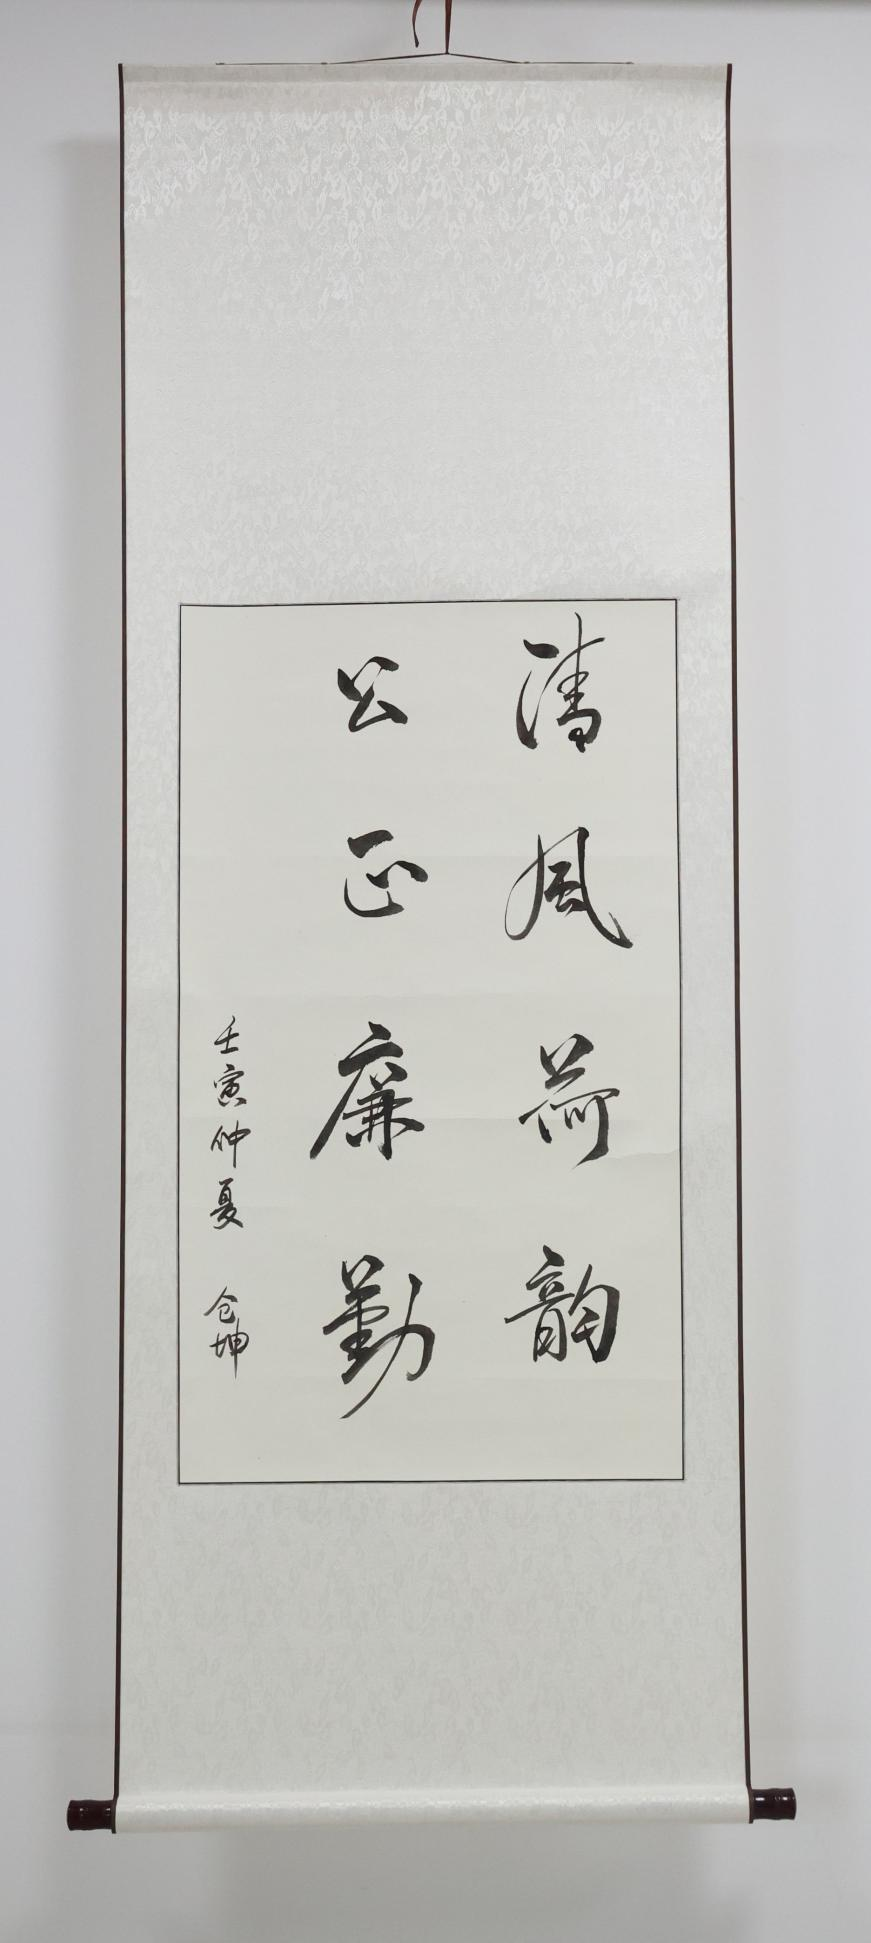 清风荷韵
公正廉勤
壬寅仲夏 仓坤